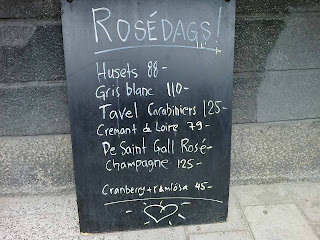 ROSÉDAGS!
Husets 88-
Gris blanc 110-
Tavel Carabiniers 125-
Cremant de Loire 79-
De Saint Gall Rosé-
Champagne 125-
Cranberry+ramlösa 45-